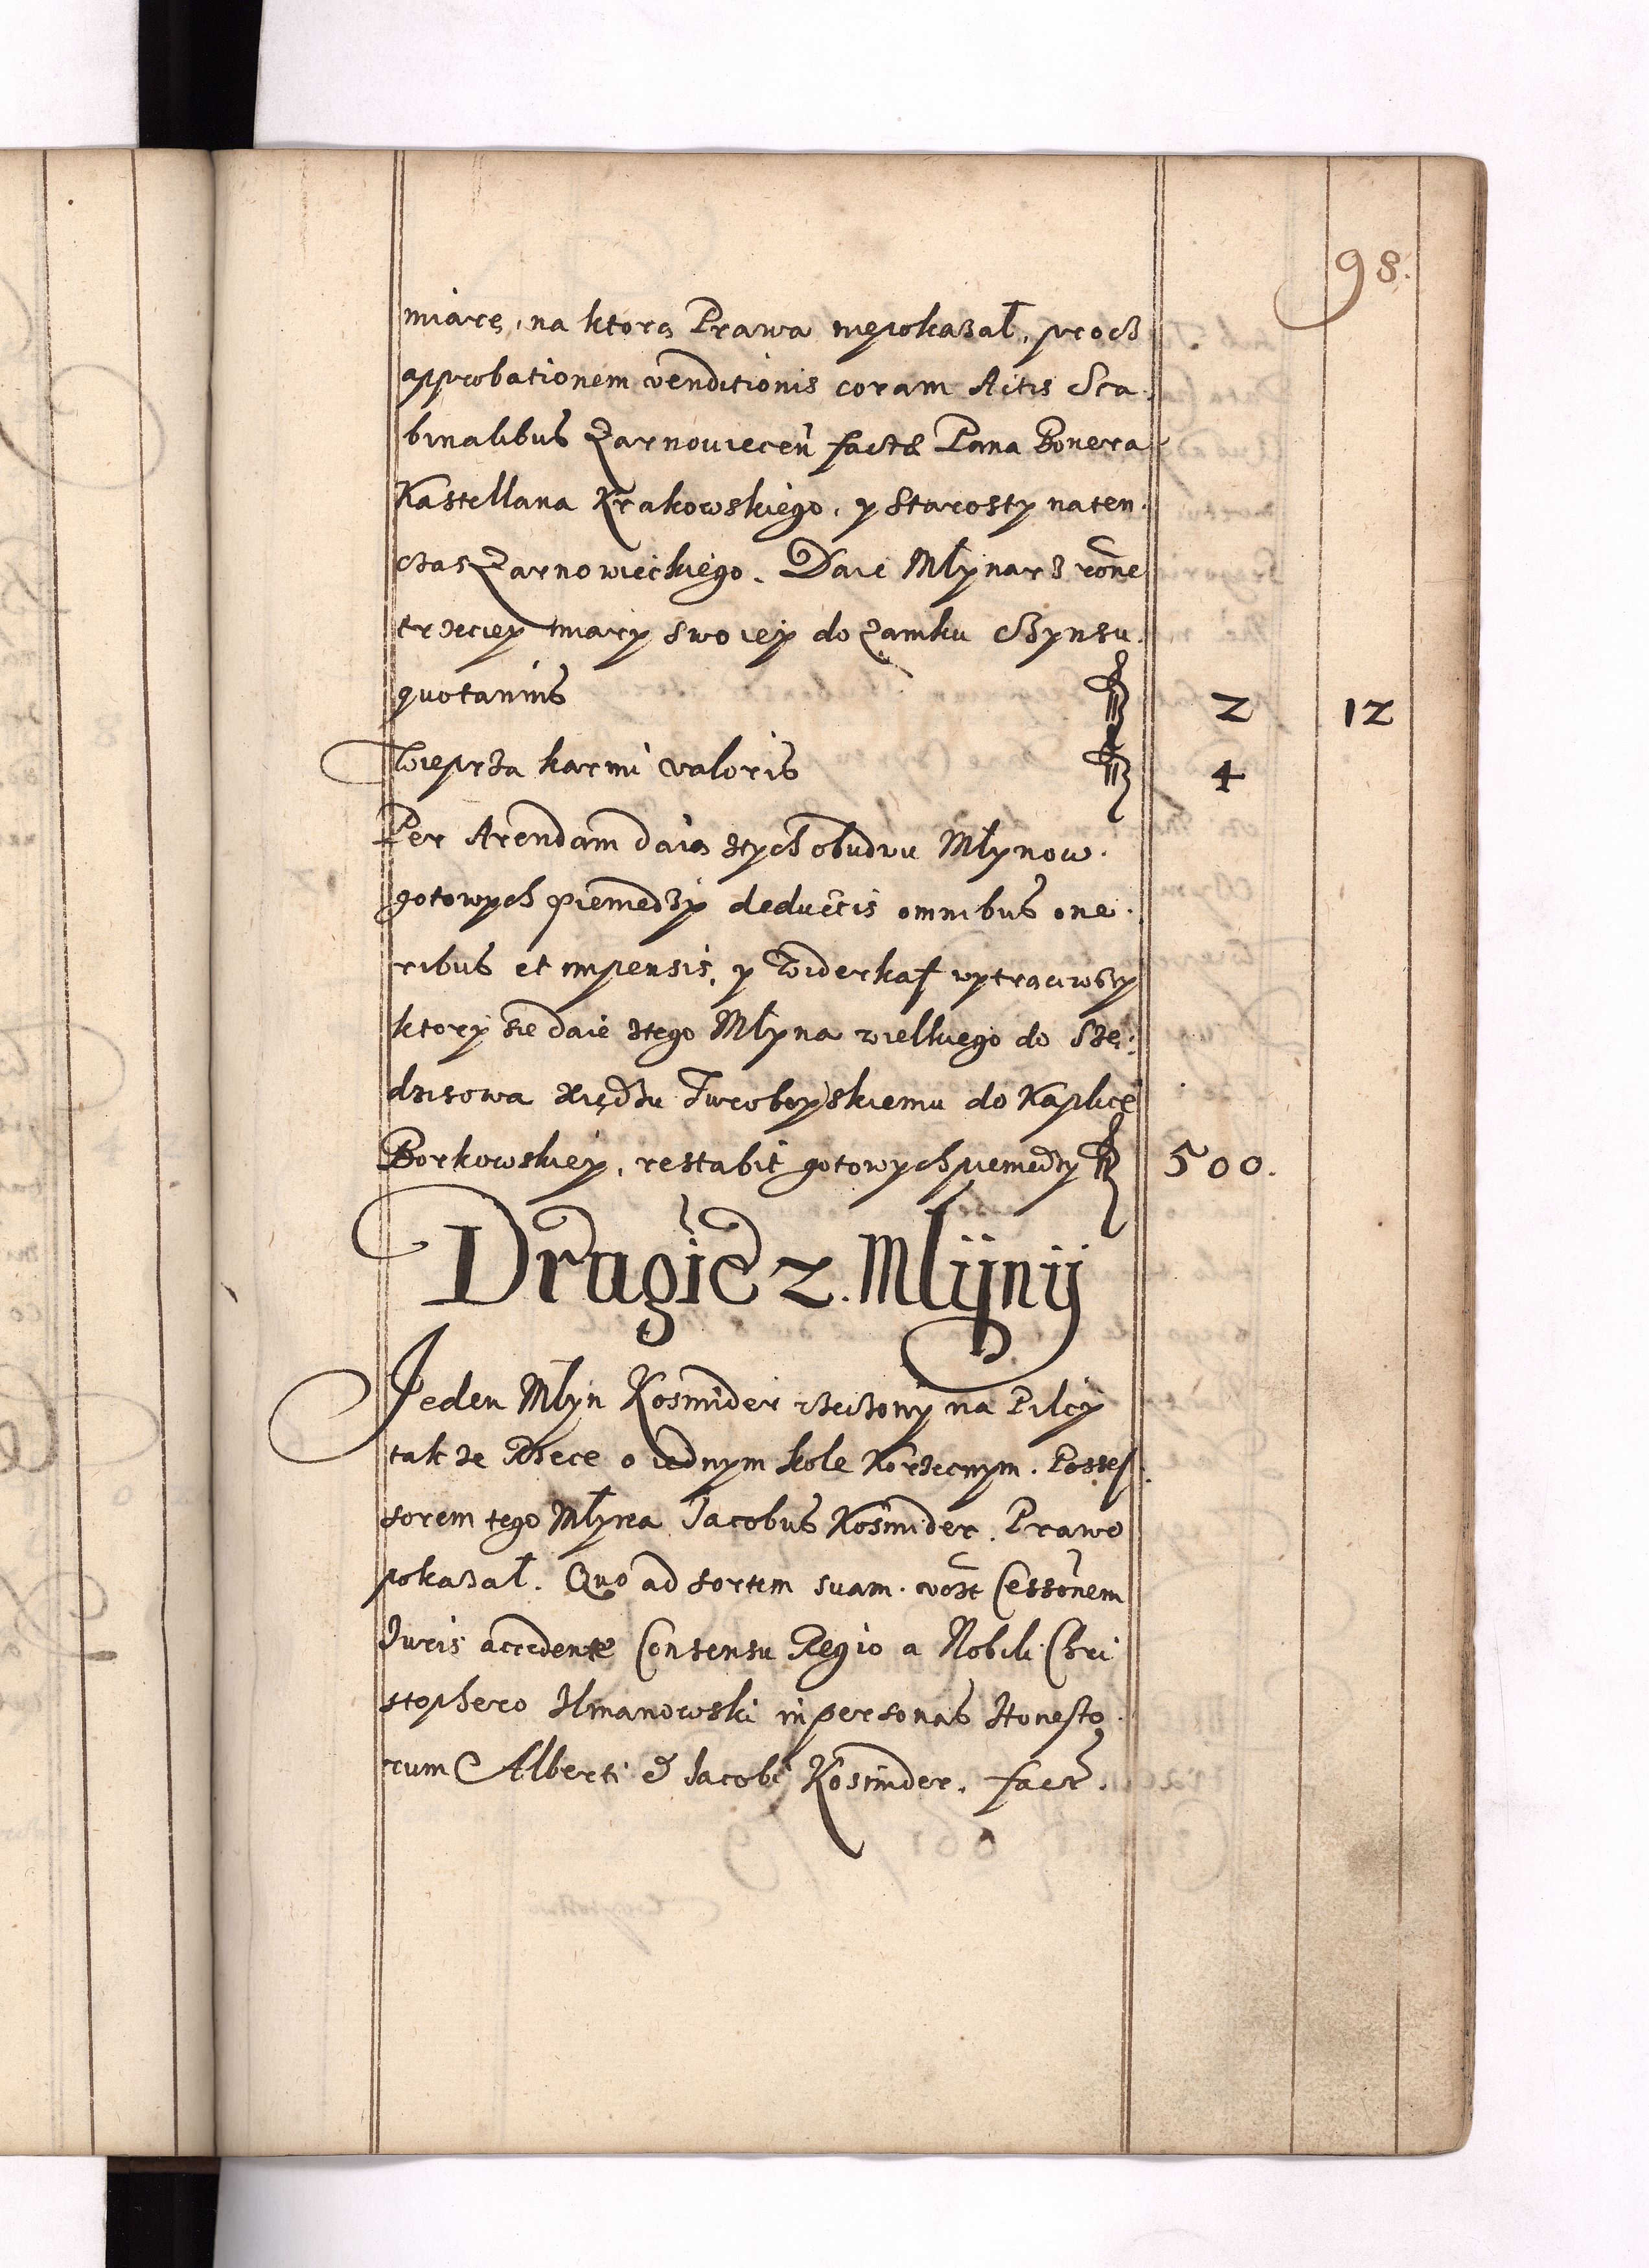 98.
miarę, na ktorą Prawa niepokazał, procz
approbationem venditionis coram Actis Sca-
binalibus Zarnoviecen̄ factæ Pana Bonera
Kastellana Krakowskiego, y Starosty naten-
czas Zarnowieckiego. Daie Młynarz rõne
trzeciey miary swoiey do Zamku Czynsu
quotannis f 2 12
Wieprza karmi valoris f 4
Per Arendam daią ztych obudwu Młynow
gotowych pieniedzy deductis omnibus one-
ribus et impensis, y Widerkaf wytrąciwszy
ktory sie daie ztego Młyna wielkiego do Szę-
dziszowa xiędzu Turoboyskiemu do Kaplice
Borkowskiey, restabit gotowych pieniedzy f 500.
Drugie z. Mlÿnÿ
Jeden Młyn Kosmider rzeczony na Pilcy
takze Rzece o iednym kole Korzecznym. Posses-
sorem tego Młyna Jacobus Kosmider. Prawo
pokazał. Quo ad sortem suam. Cessõnem
Juris accedente Consensu Regio a Nobili Chri
stophero Ilmanowski in personas Honesto-
rum Alberti & Jacobi Kosmider. fact̃.